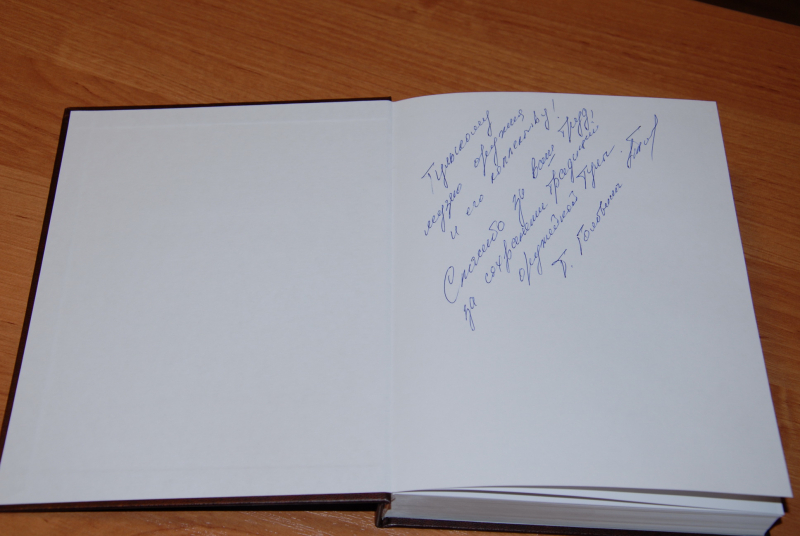 Тульскому
музею оружия
и его коллективу!
Спасибо за ваш труд,
за сохранении традиций
оружейной Тулы.
Т. Головины